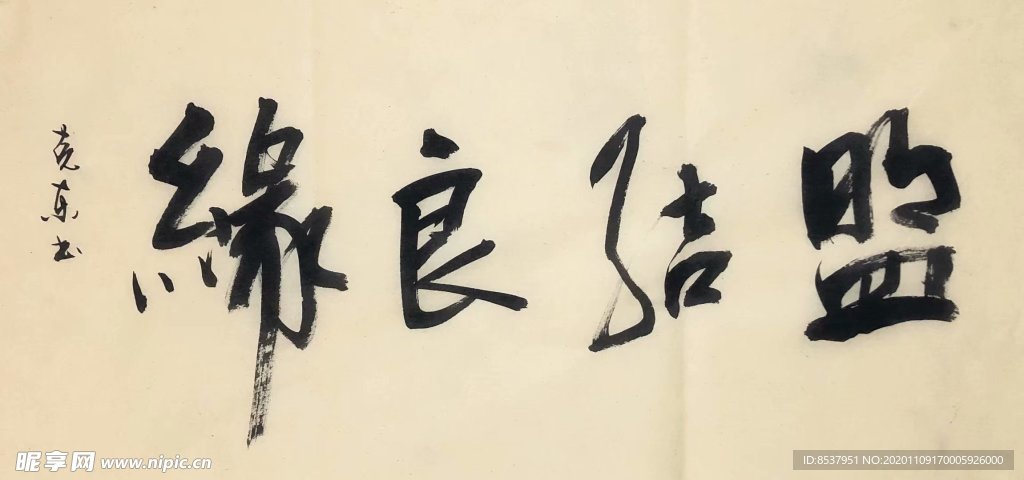 盟结良緣
克东书
昵享网 www.nipic.cn
ID:8537951 NO:20201109170005926000